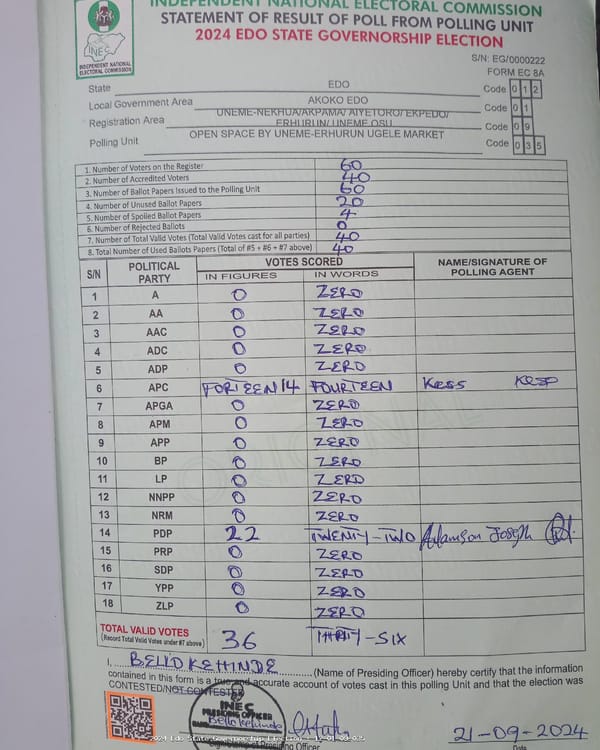 INDEPENDENT NATIONAL ELECTORAL COMMISSION
STATEMENT OF RESULT OF POLL FROM POLLING UNIT
2024 EDO STATE GOVERNORSHIP ELECTION
INEC
INDEPENDENT NATIONAL
ELECTORAL COMMISSION
S/N: EG/0000222
FORM EC 8A
State EDO Code 0 1 2
Local Government Area AKOKO EDO Code 0 1
Registration Area UNEME-NEKHUA/AKPAMA/ AIYETORO/ EKPEDO/ ERHURUN/ UNEME OSU Code 0 9
Polling Unit OPEN SPACE BY UNEME-ERHURUN UGELE MARKET Code 0 3 5
1. Number of Voters on the Register 60
2. Number of Accredited Voters 40
3. Number of Ballot Papers Issued to the Polling Unit 60
4. Number of Unused Ballot Papers 20
5. Number of Spoiled Ballot Papers 4
6. Number of Rejected Ballots 0
7. Number of Total Valid Votes (Total Valid Votes cast for all parties) 40
8. Total Number of Used Ballots Papers (Total of #5 + #6 + #7 above) 40
S/N POLITICAL PARTY VOTES SCORED NAME/SIGNATURE OF POLLING AGENT
IN FIGURES IN WORDS
1 A 0 ZERO
2 AA 0 ZERO
3 AAC 0 ZERO
4 ADC 0 ZERO
5 ADP 0 ZERO
6 APC FORTEEN 14 FOURTEEN Kess Kesp
7 APGA 0 ZERO
8 APM 0 ZERO
9 APP 0 ZERO
10 BP 0 ZERO
11 LP 0 ZERO
12 NNPP 0 ZERO
13 NRM 0 ZERO
14 PDP 22 TWENTY-TWO Adamson Joseph
15 PRP 0 ZERO
16 SDP 0 ZERO
17 YPP 0 ZERO
18 ZLP 0 ZERO
TOTAL VALID VOTES 36 THIRTY-SIX
(Record Total Valid Votes under #7 above)
I, BELLO KEHINDE (Name of Presiding Officer) hereby certify that the information
contained in this form is a true and accurate account of votes cast in this polling Unit and that the election was
CONTESTED/NOT CONTESTED
INEC
PRESIDING OFFICER
Bello kehinde
21-09-2024
Presiding Officer
Date
2024 Edo State Governorship Election - 12-01-09-035